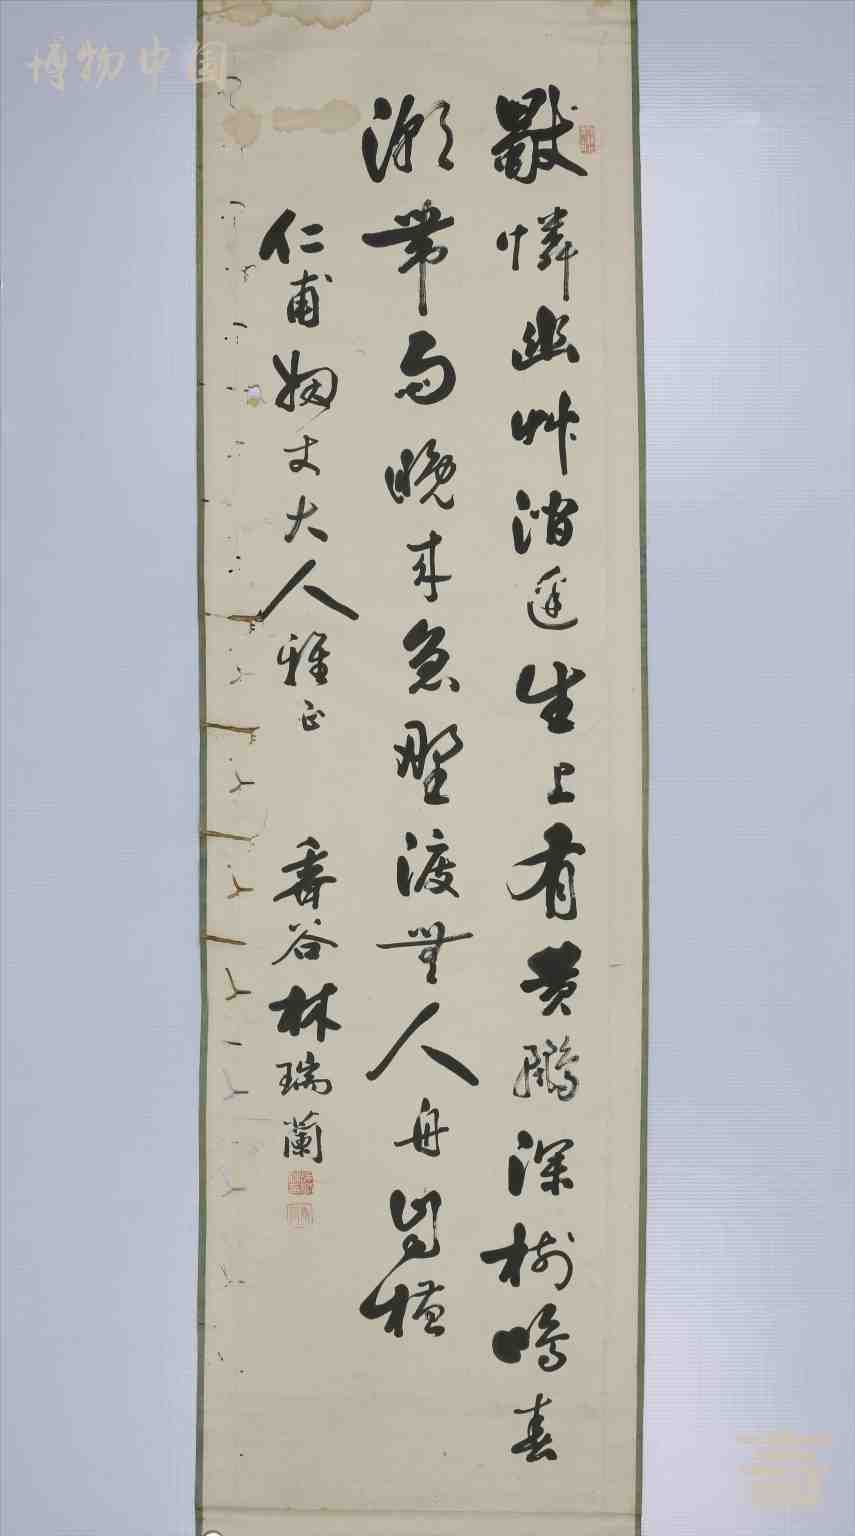 博物中国
獨憐幽艸澗邊生上有黃鸝深樹鳴春
潮帶雨晚來急野渡無人舟自橫
仁甫姻丈大人雅正
谷林瑞蘭